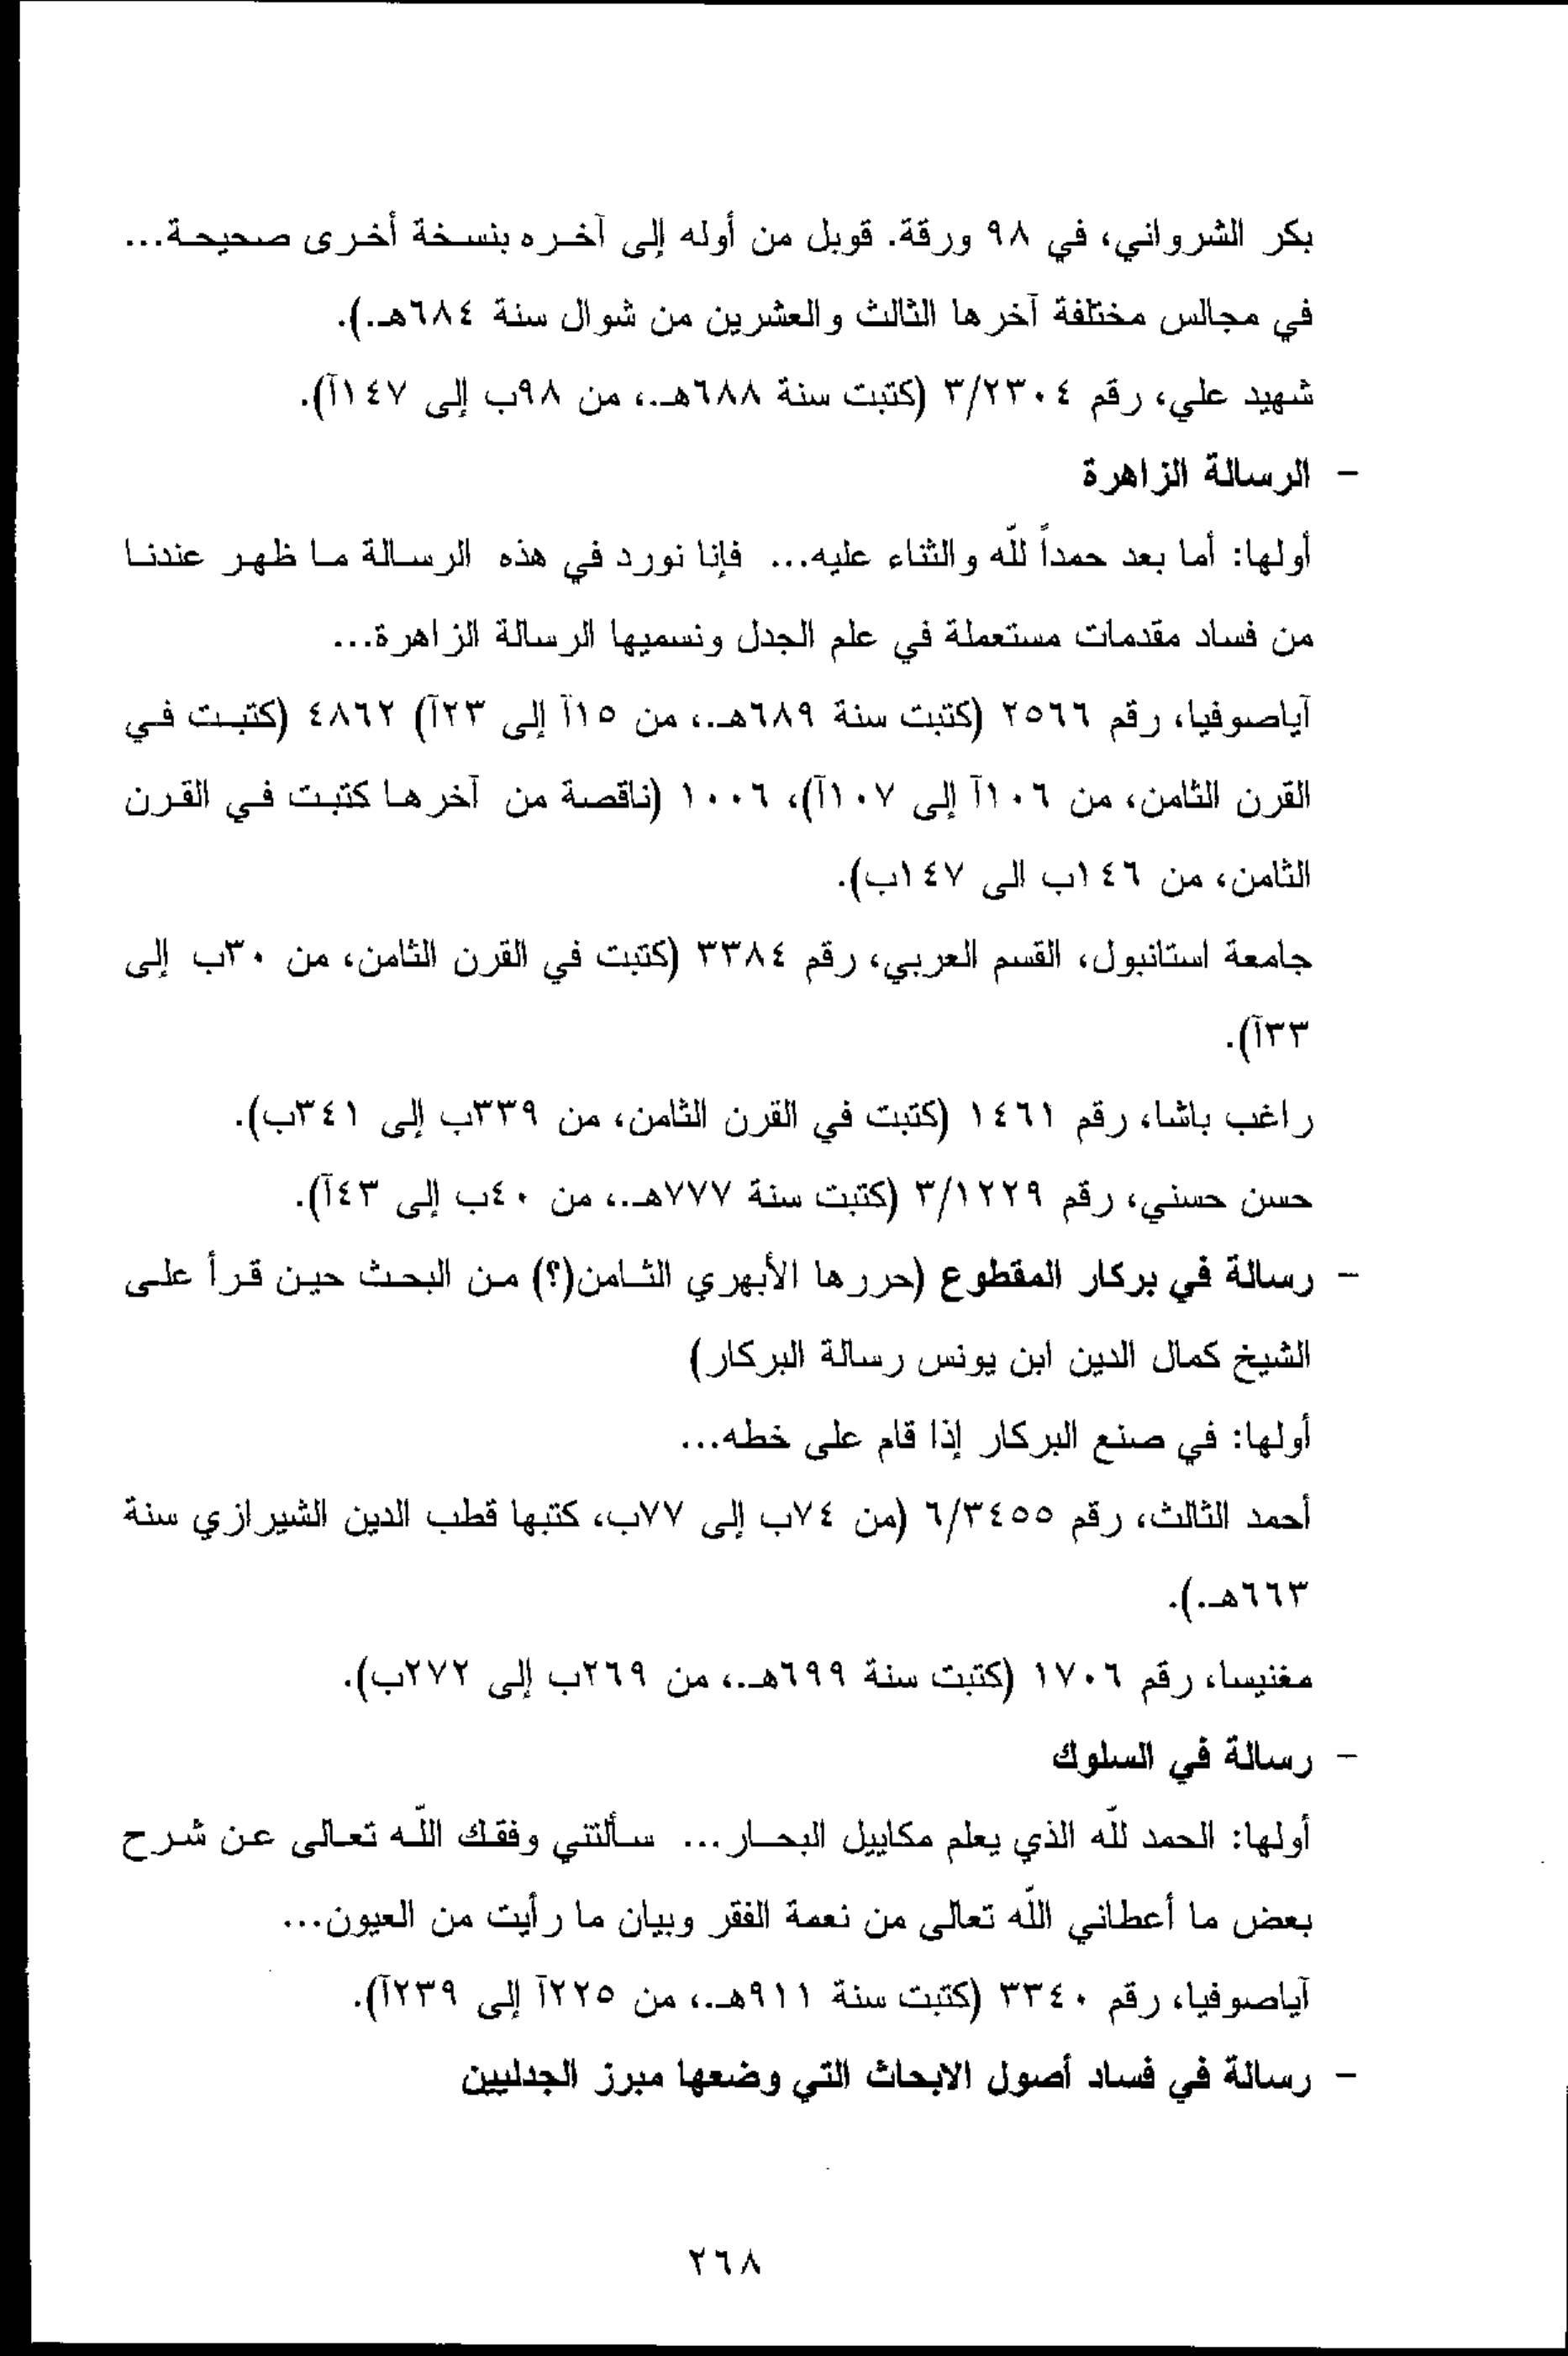 بكر الشرواني، في ٩٨ ورقة. قوبل من أوله إلى آخره بنسخة أخرى صحيحة...
في مجالس مختلفة آخرها الثالث والعشرين من شوال سنة ٦٨٤هـ.).
شهيد علي، رقم ٣/٢٣٠٤ (كتبت سنة ٦٨٨هـ.، من ٩٨ب إلى ١٤٧آ).
- الرسالة الزاهرة
أولها: أما بعد حمداً للّه والثناء عليه... فإنا نورد في هذه الرسالة ما ظهر عندنا
من فساد مقدمات مستعملة في علم الجدل ونسميها الرسالة الزاهرة...
آياصوفيا، رقم ٢٥٦٦ (كتبت سنة ٦٨٩هـ.، من ١٥آ إلى ٢٣آ) ٤٨٦٢ (كتبت في
القرن الثامن، من ١٠٦آ إلى ١٠٧آ)، ١٠٠٦ (ناقصة من آخرها كتبت في القرن
الثامن، من ١٤٦ب الى ١٤٧ب).
جامعة استانبول، القسم العربي، رقم ٣٣٨٤ (كتبت في القرن الثامن، من ٣٠ب إلى
٣٣آ).
راغب باشا، رقم ١٤٦١ (كتبت في القرن الثامن، من ٣٣٩ب إلى ٣٤١ب).
حسن حسني، رقم ٣/١٢٢٩ (كتبت سنة ٧٧٧هـ.، من ٤٠ب إلى ٤٣آ).
- رسالة في بركار المقطوع (حررها الأبهري الثامن(؟) من البحث حين قرأ على
الشيخ كمال الدين ابن يونس رسالة البركار)
أولها: في صنع البركار إذا قام على خطه...
أحمد الثالث، رقم ٦/٣٤٥٥ (من ٧٤ب إلى ٧٧ب، كتبها قطب الدين الشيرازي سنة
٦٦٣هـ.).
مغنيسا، رقم ١٧٠٦ (كتبت سنة ٦٩٩هـ.، من ٢٦٩ب إلى ٢٧٢ب).
- رسالة في السلوك
أولها: الحمد للّه الذي يعلم مكاييل البحار... سألتني وفقك اللّه تعالى عن شرح
بعض ما أعطاني اللّه تعالى من نعمة الفقر وبيان ما رأيت من العيون...
آياصوفيا، رقم ٣٣٤٠ (كتبت سنة ٩١١هـ.، من ٢٢٥آ إلى ٢٣٩آ).
- رسالة في فساد أصول الابحاث التي وضعها مبرز الجدليين
٢٦٨